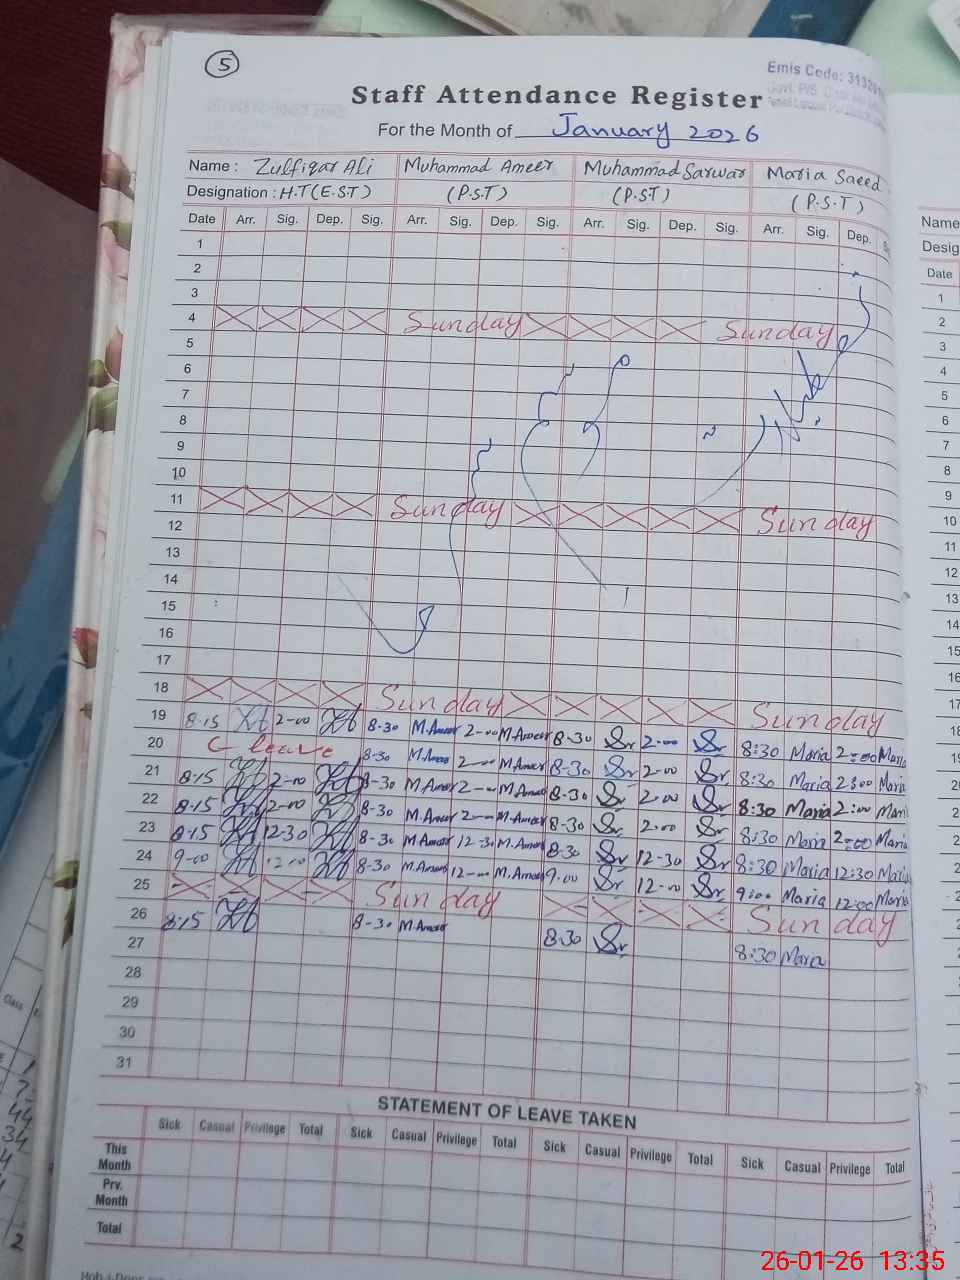 5
Emis Code: 31320
Staff Attendance Register
For the Month of January 2026
Name : Zulfiqar Ali Muhammad Ameer Muhammad Sarwar Maria Saeed
Designation : H.T(E.ST) (P.S.T) (P.S.T) (P.S.T)
Date Arr. Sig. Dep. Sig. Arr. Sig. Dep. Sig. Arr. Sig. Dep. Sig. Arr. Sig. Dep.
1
2
3
4 Sunday Sunday
5
6
7
8
9
10
11 Sunday Sunday
12
13
14
15
16
17
18 Sunday Sunday
19 8-15 2-00 8-30 M.Ameer 2-00 M.Ameer 8-30 Sr 2-00 Sr 8:30 Maria 2:00 Maria
20 C leave 8-30 M.Ameer 2-00 M.Ameer 8-30 Sr 2-00 Sr 8:30 Maria 2:00 Maria
21 8-15 2-00 8-30 M.Ameer 2-00 M.Ameer 8-30 Sr 2-00 Sr 8:30 Maria 2:00 Maria
22 8-15 2-00 8-30 M.Ameer 2-00 M.Ameer 8-30 Sr 2-00 Sr 8:30 Maria 2:00 Maria
23 8-15 12-30 8-30 M.Ameer 12-30 M.Ameer 8-30 Sr 12-30 Sr 8:30 Maria 12:30 Maria
24 9-00 12-00 8-30 M.Ameer 12-00 M.Ameer 9-00 Sr 12-00 Sr 9:00 Maria 12:00 Maria
25 Sunday Sunday
26 8:15 8-30 M.Ameer 8-30 Sr 8:30 Maria
27
28
29
30
31
STATEMENT OF LEAVE TAKEN
Sick Casual Privilege Total Sick Casual Privilege Total Sick Casual Privilege Total Sick Casual Privilege Total
This Month
Prv. Month
Total
Name
Date
1
2
3
4
5
6
7
8
9
10
11
12
13
14
15
16
17
18
26-01-26 13:35